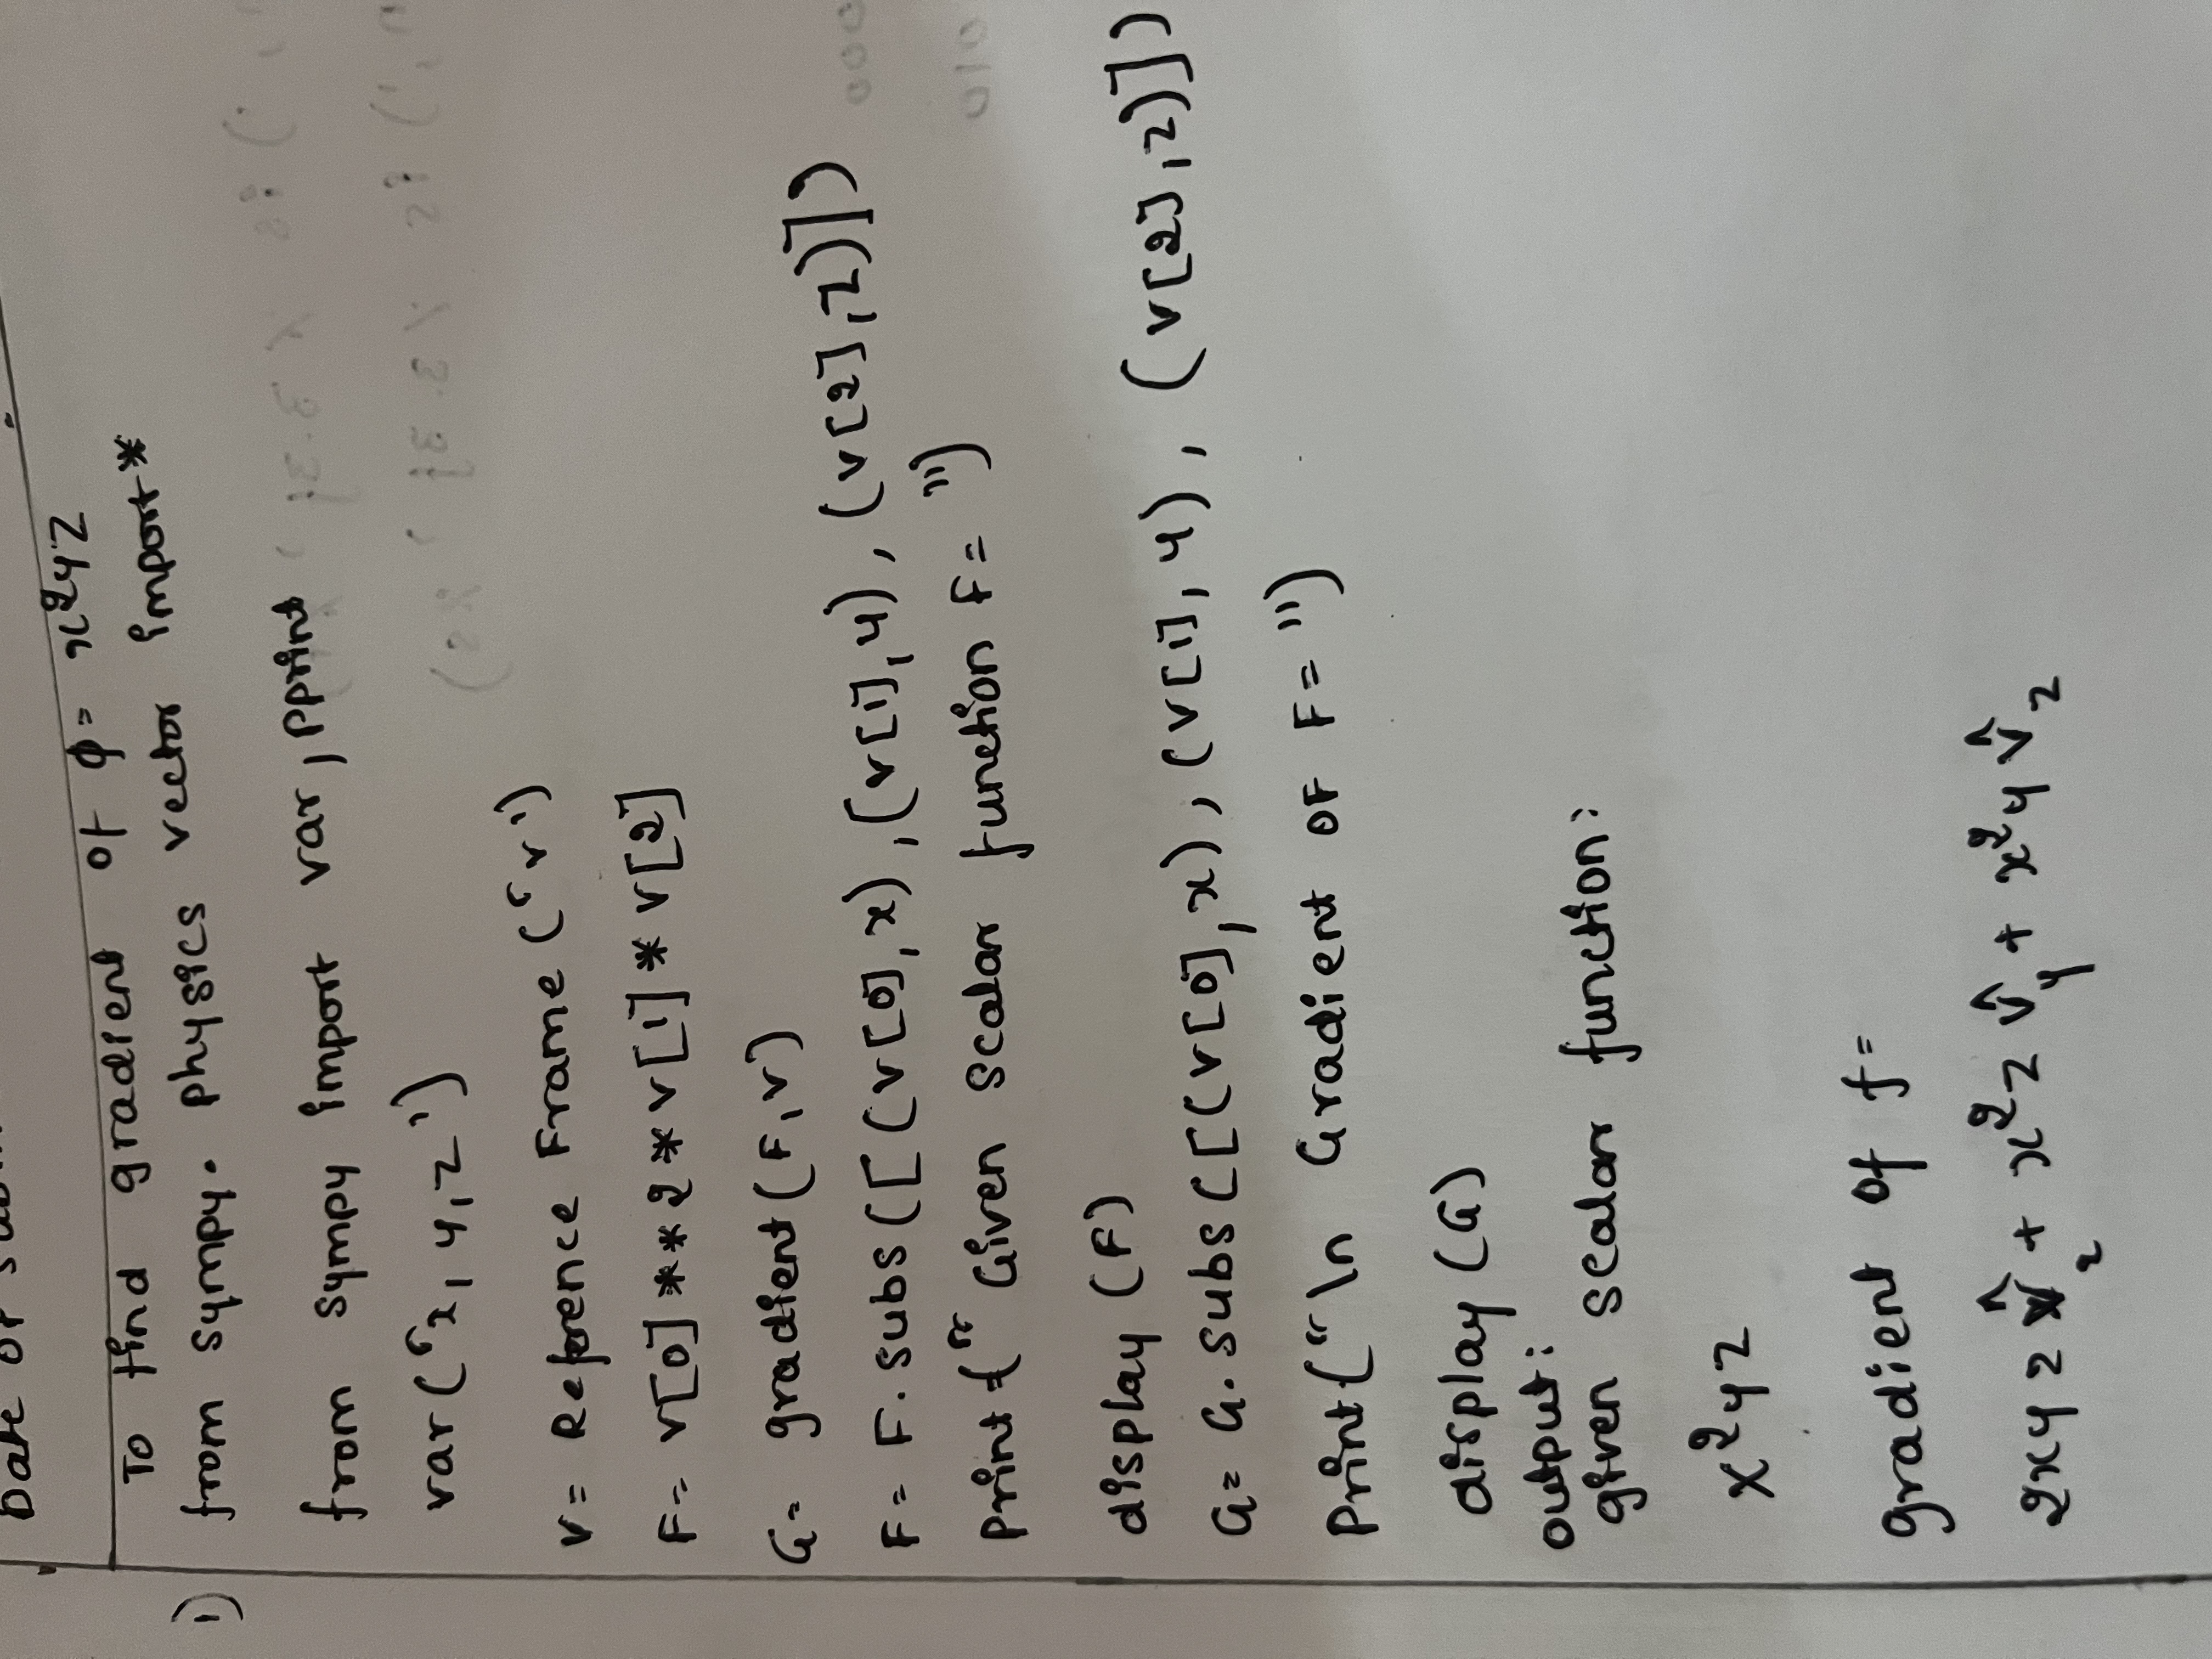 Date of
To find gradient of φ= x²yz
1) from sympy. physics vector import*
from sympy import var, pprint
var(‘x, y, z’)
v= Reference Frame (‘v’)
F= v[0]**2*v[1]*v[2]
G= gradient(F,v)
F= F. subs([(v[0],x),(v[1],y), (v[2],z)])
Print(“Given scalar function F= ”)
display (F)
G= G. subs([(v[0],x), (v[1],y), (v[2],z)])
Print(“\n Gradient OF F= ”)
display (G)
output:
given scalar function:
x²yz
gradient of f=
2xyz v̂₂ + x²z v̂y + x²y v̂z